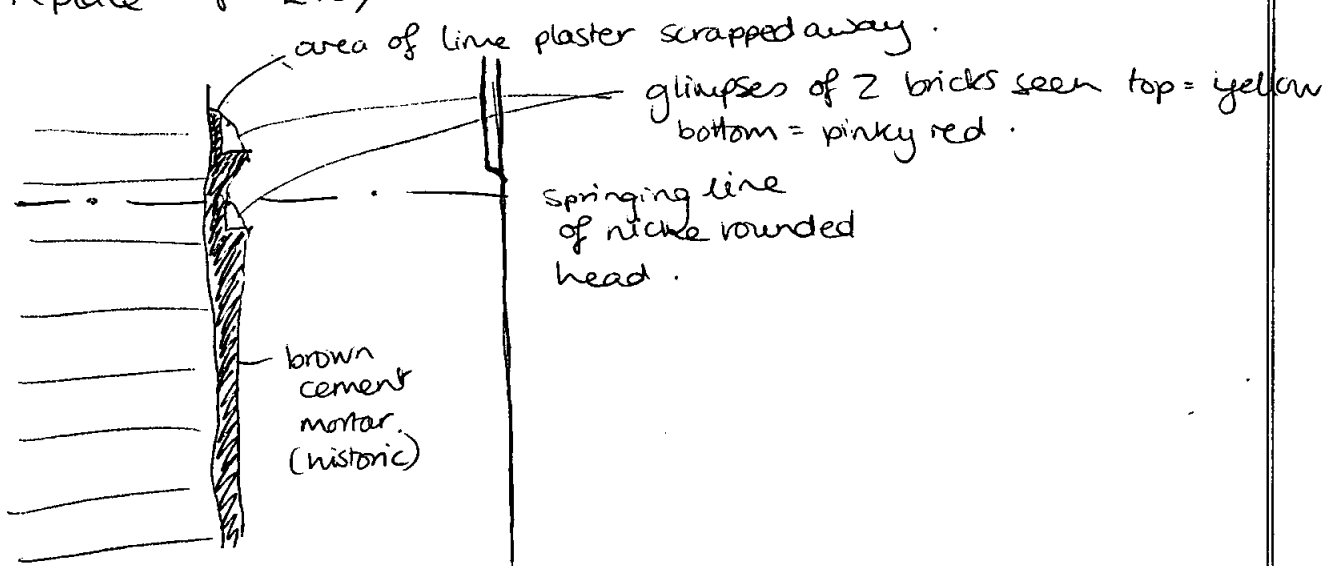 area of lime plaster scrapped away.
glimpses of 2 bricks seen top = yellow
bottom = pinky red.
springing line
of niche rounded
head.
brown
cement
mortar.
(historic)